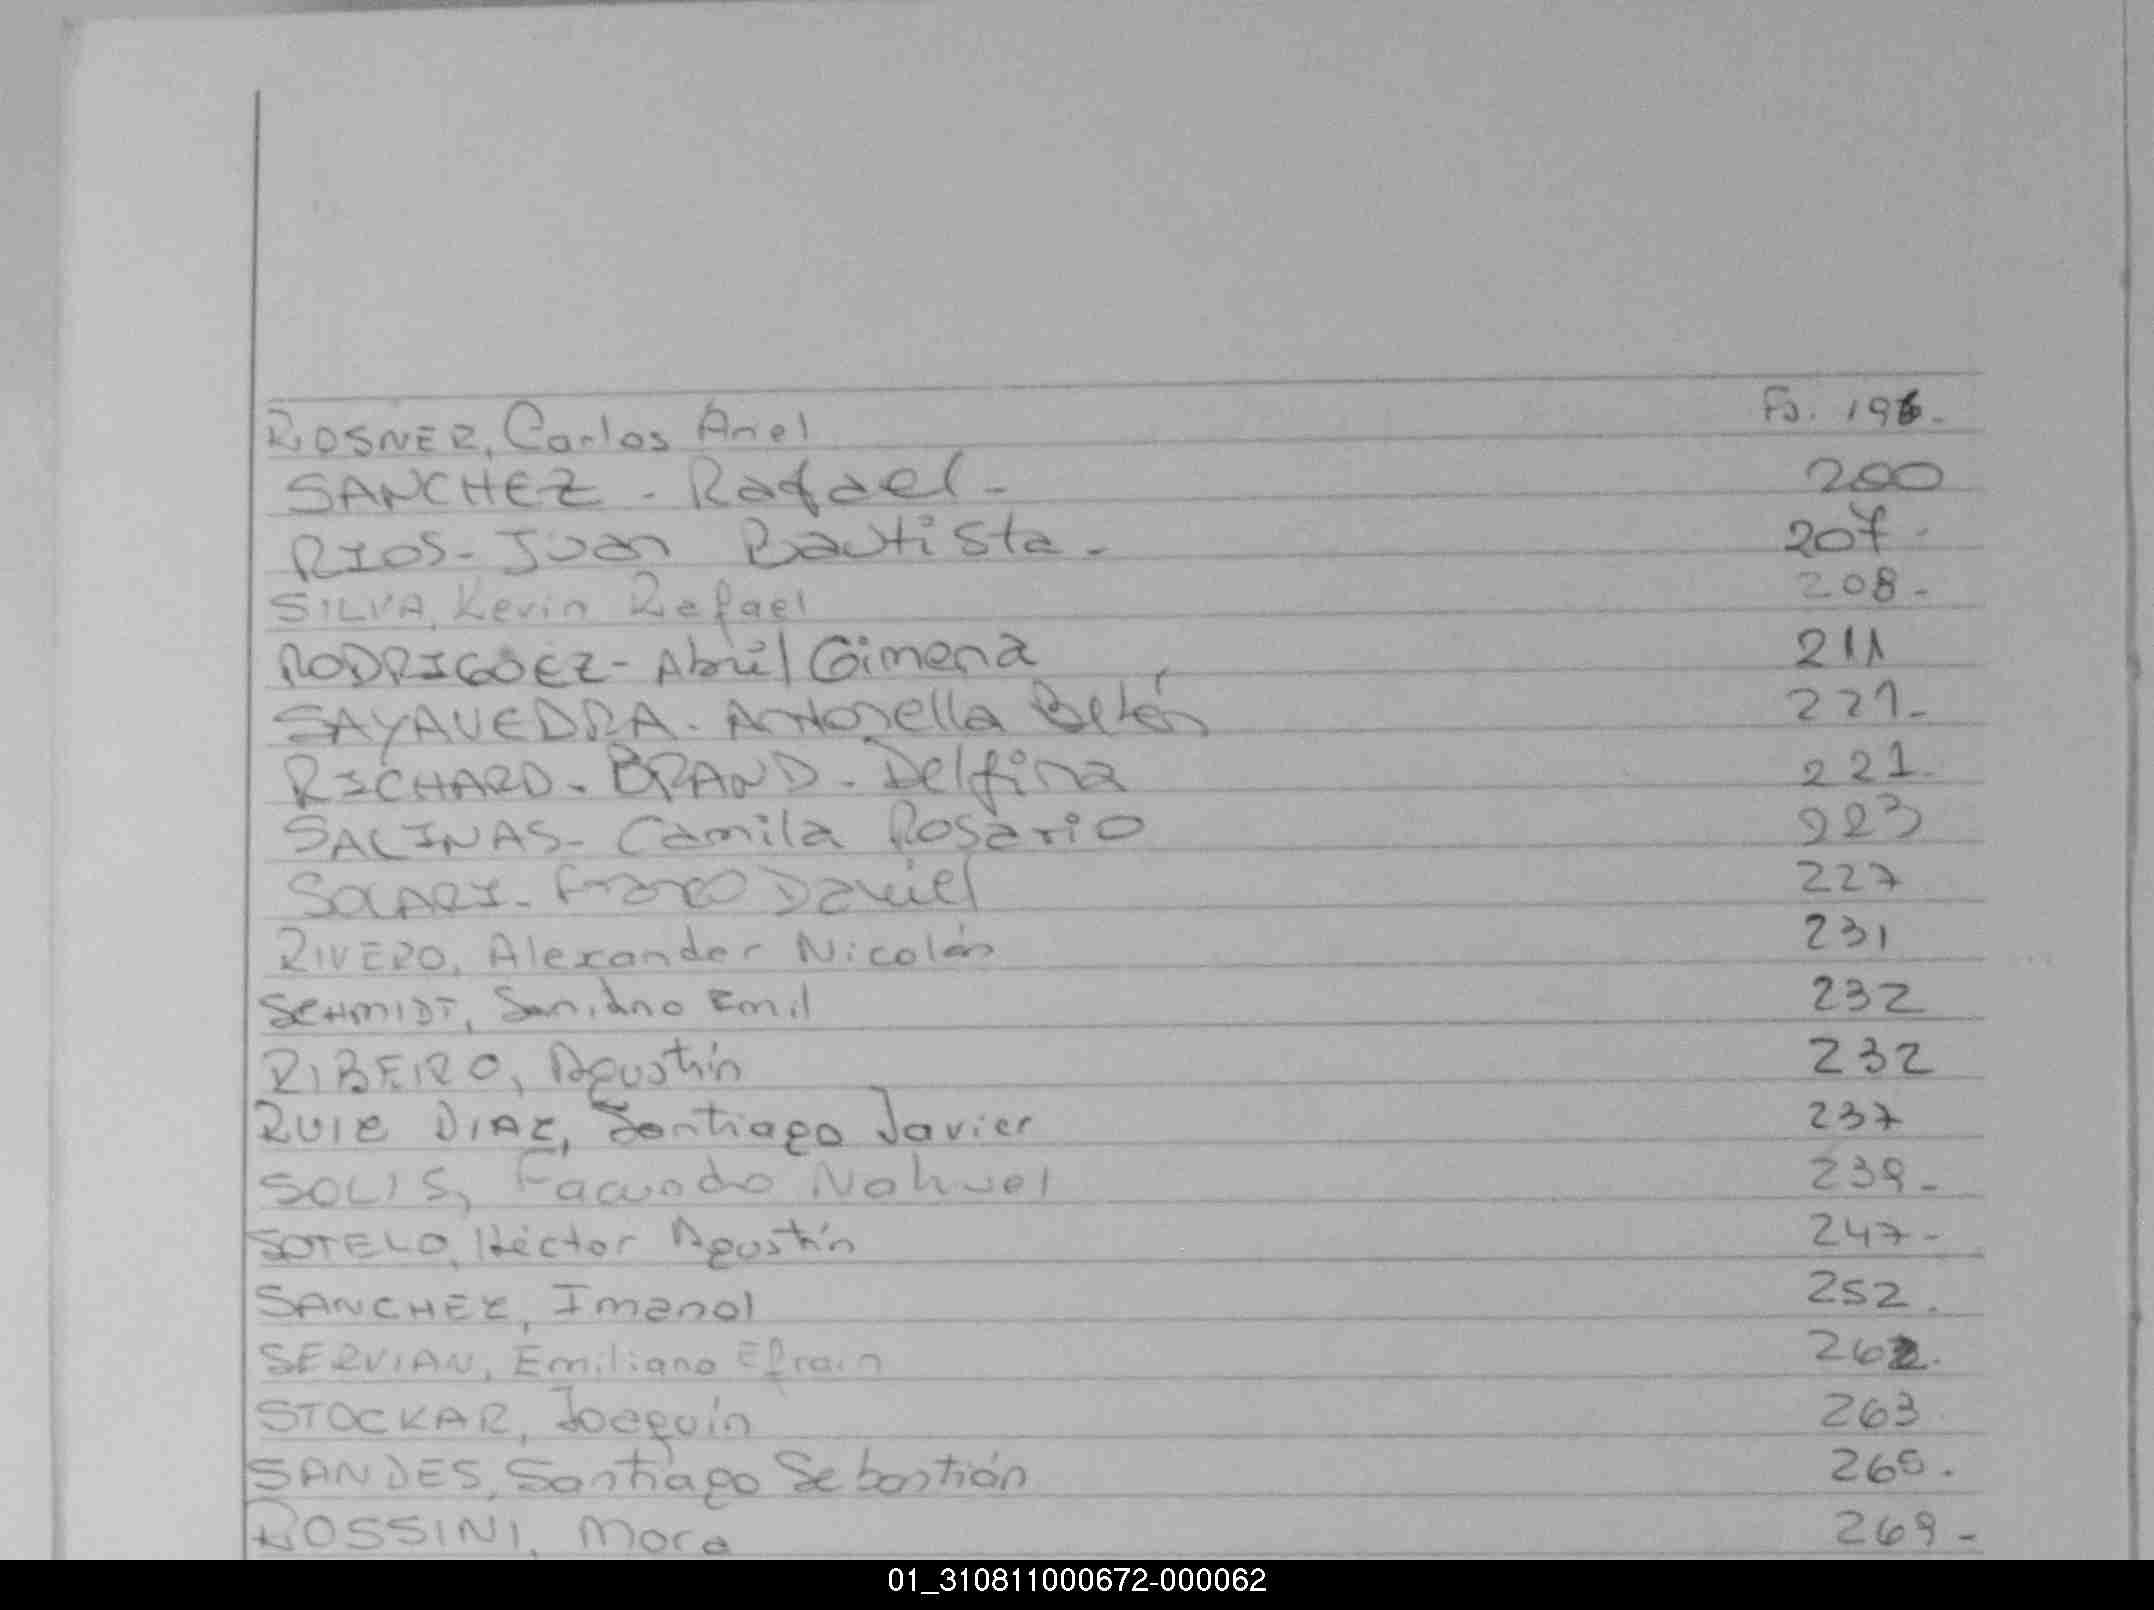 ROSNER, Carlos Ariel Fs. 196.
SANCHEZ - Rafael - 200
RIOS - Juan Bautista - 207 -
SILVA, Kevin Rafael 208 -
RODRIGUEZ - Abril Gimena 211
SAYAVEDRA - Antonella Belén 221 -
RICHARD - BRAND - Delfina 221 -
SALINAS - Camila Rosario 223
SOLARI - Franco Daniel 227
RIVERO, Alexander Nicolás 231
SCHMIDT, Emil 232
RIBEIRO, Agustín 232
RUIZ DIAZ, Santiago Javier 237
SOLIS, Facundo Nahuel 239 -
SOTELO, Héctor Agustín 247 -
SANCHEZ, Imanol 252.
SERVIAN, Emiliano Efrain 262.
STOCKAR, Joaquín 263
SANDES, Santiago Sebastián 265.
ROSSINI, Mora 269 -
01_310811000672-000062